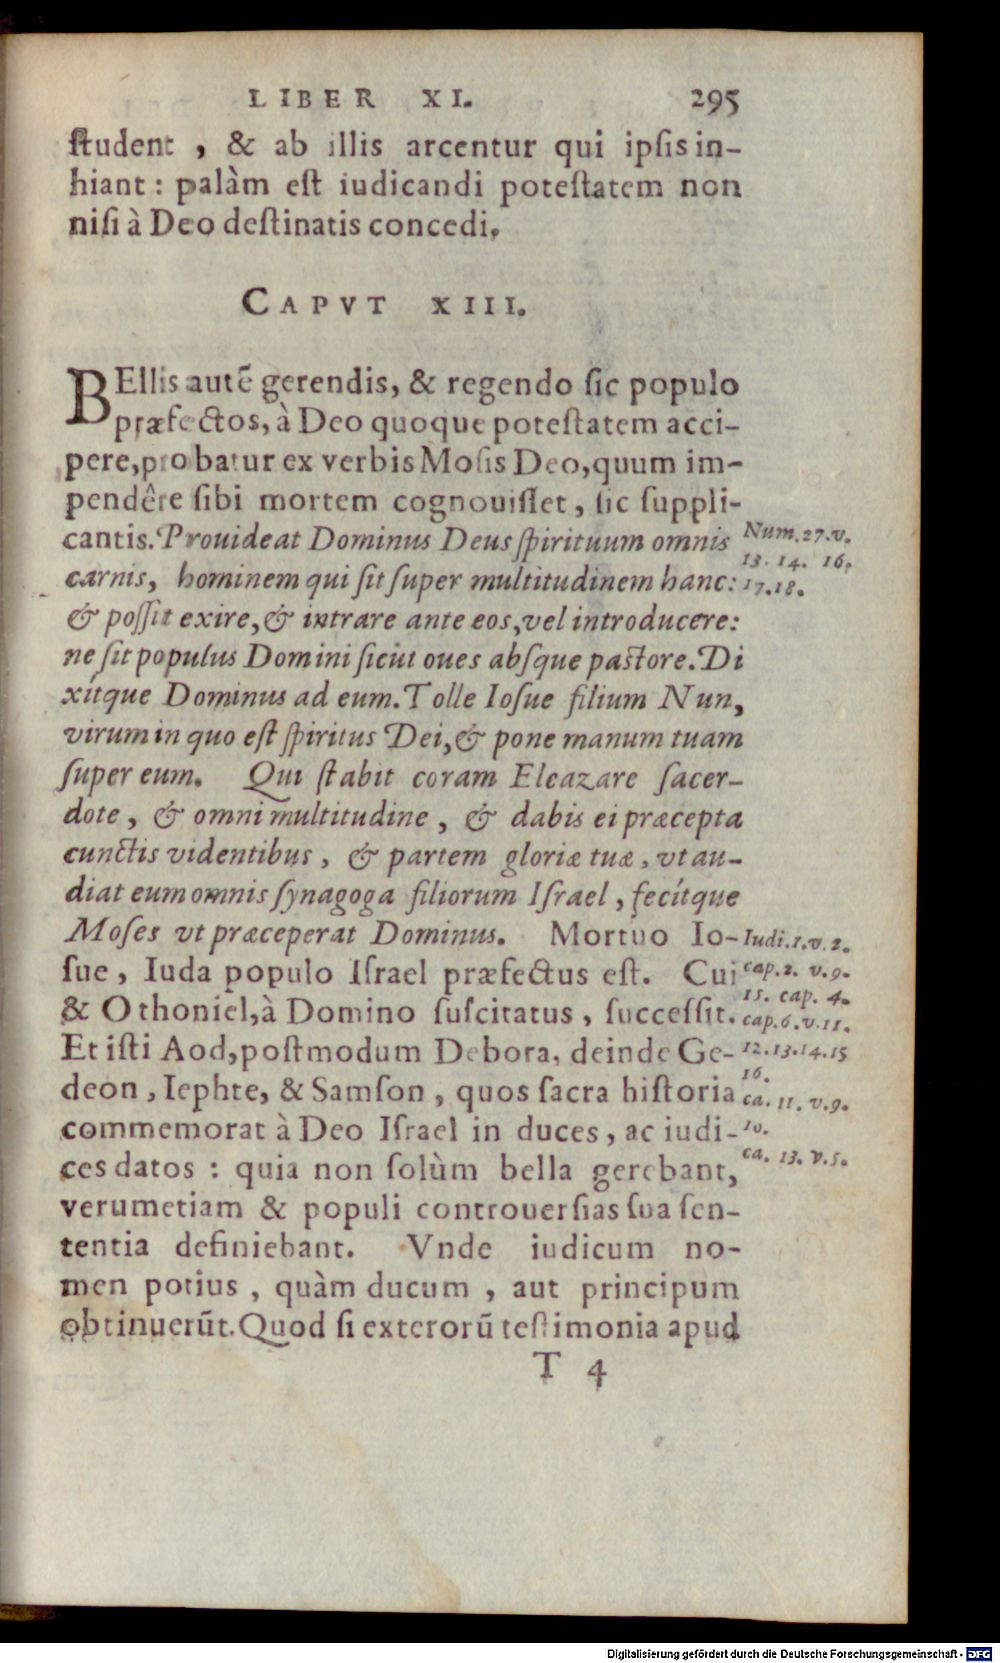 LIBER XI. 295
ſtudent , & ab illis arcentur qui ipſis in-
hiant : palàm eſt iudicandi poteſtatem non
niſi à Deo deſtinatis concedi.
CAPVT XIII.
BEllis autẽ gerendis, & regendo ſic populo
præfectos, à Deo quoque poteſtatem acci-
pere, probatur ex verbis Moſis Deo, quum im-
pendêre ſibi mortem cognouiſſet, ſic ſuppli-
cantis. Prouideat Dominus Deus ſpirituum omnis
Num. 27. v.
carnis, hominem qui ſit ſuper multitudinem hanc:
13. 14. 16.
17. 18.
& poſſit exire, & intrare ante eos, vel introducere:
ne ſit populus Domini ſicut oues abſque paſtore. Di
xítque Dominus ad eum. Tolle Ioſue filium Nun,
virum in quo eſt ſpiritus Dei, & pone manum tuam
ſuper eum. Qui ſtabit coram Eleazare ſacer-
dote, & omni multitudine, & dabis ei præcepta
cunctis videntibus, & partem gloriæ tuæ, vt au-
diat eum omnis ſynagoga filiorum Iſrael, fecítque
Moſes vt præceperat Dominus. Mortuo Io-
Iudi. 1. v. 2.
ſue, Iuda populo Iſrael præfectus eſt. Cui
cap. 2. v. 9.
15. cap. 4.
& Othoniel, à Domino ſuſcitatus, ſucceſſit.
cap. 6. v. 11.
Et iſti Aod, poſtmodum Debora, deinde Ge-
12. 13. 14. 15
16.
deon, Iephte, & Samſon, quos ſacra hiſtoria
ca. 11. v. 9.
commemorat à Deo Iſrael in duces, ac iudi-
10.
ces datos : quia non ſolùm bella gerebant,
ca. 13. v. 5.
verumetiam & populi controuerſias ſua ſen-
tentia definiebant. Vnde iudicum no-
men potius, quàm ducum, aut principum
obtinuerũt. Quod ſi exterorũ teſtimonia apud
T 4
Digitalisierung gefördert durch die Deutsche Forschungsgemeinschaft - DFG